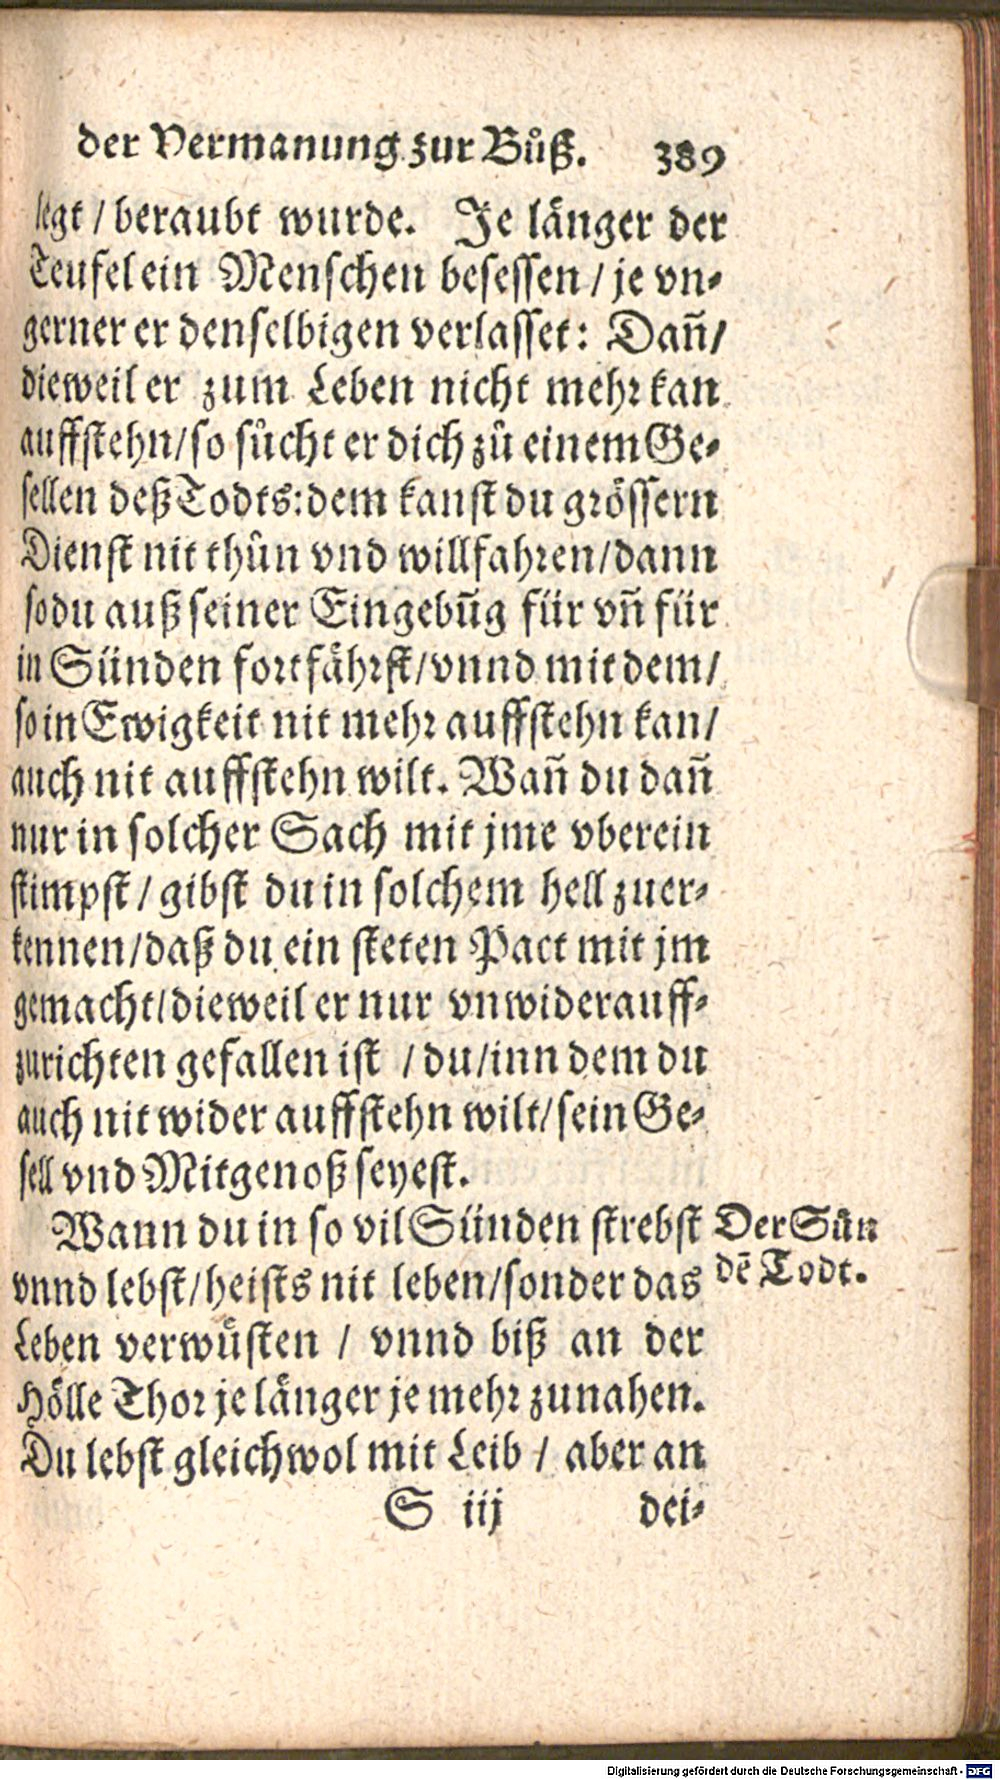 der Vermanung zur Bůß. 389
legt / beraubt wurde. Je länger der
Teufel ein Menschen besessen / je vn-
gerner er denselbigen verlasset: Dañ/
dieweil er zum Leben nicht mehr kan
auffstehn/so sůcht er dich zů einem Ge-
sellen deß Todts: dem kanst du grössern
Dienst nit thůn vnd willfahren/dann
so du auß seiner Eingebũg für vñ für
in Sünden fortfährst/vnnd mit dem/
so in Ewigkeit nit mehr auffstehn kan/
auch nit auffstehn wilt. Wañ du dañ
nur in solcher Sach mit jme vberein
stimpst / gibst du in solchem hell zuer-
kennen/daß du ein steten Pact mit jm
gemacht/dieweil er nur vnwiderauff-
zurichten gefallen ist / du/inn dem du
auch nit wider auffstehn wilt/sein Ge-
sell vnd Mitgenoß seyest.
Wann du in so vil Sünden strebst
vnnd lebst/heists nit leben/sonder das
Leben verwůsten / vnnd biß an der
Hölle Thor je länger je mehr zunahen.
Du lebst gleichwol mit Leib / aber an
S iij dei-
Der Sün
dẽ Todt.
Digitalisierung gefördert durch die Deutsche Forschungsgemeinschaft - DFG